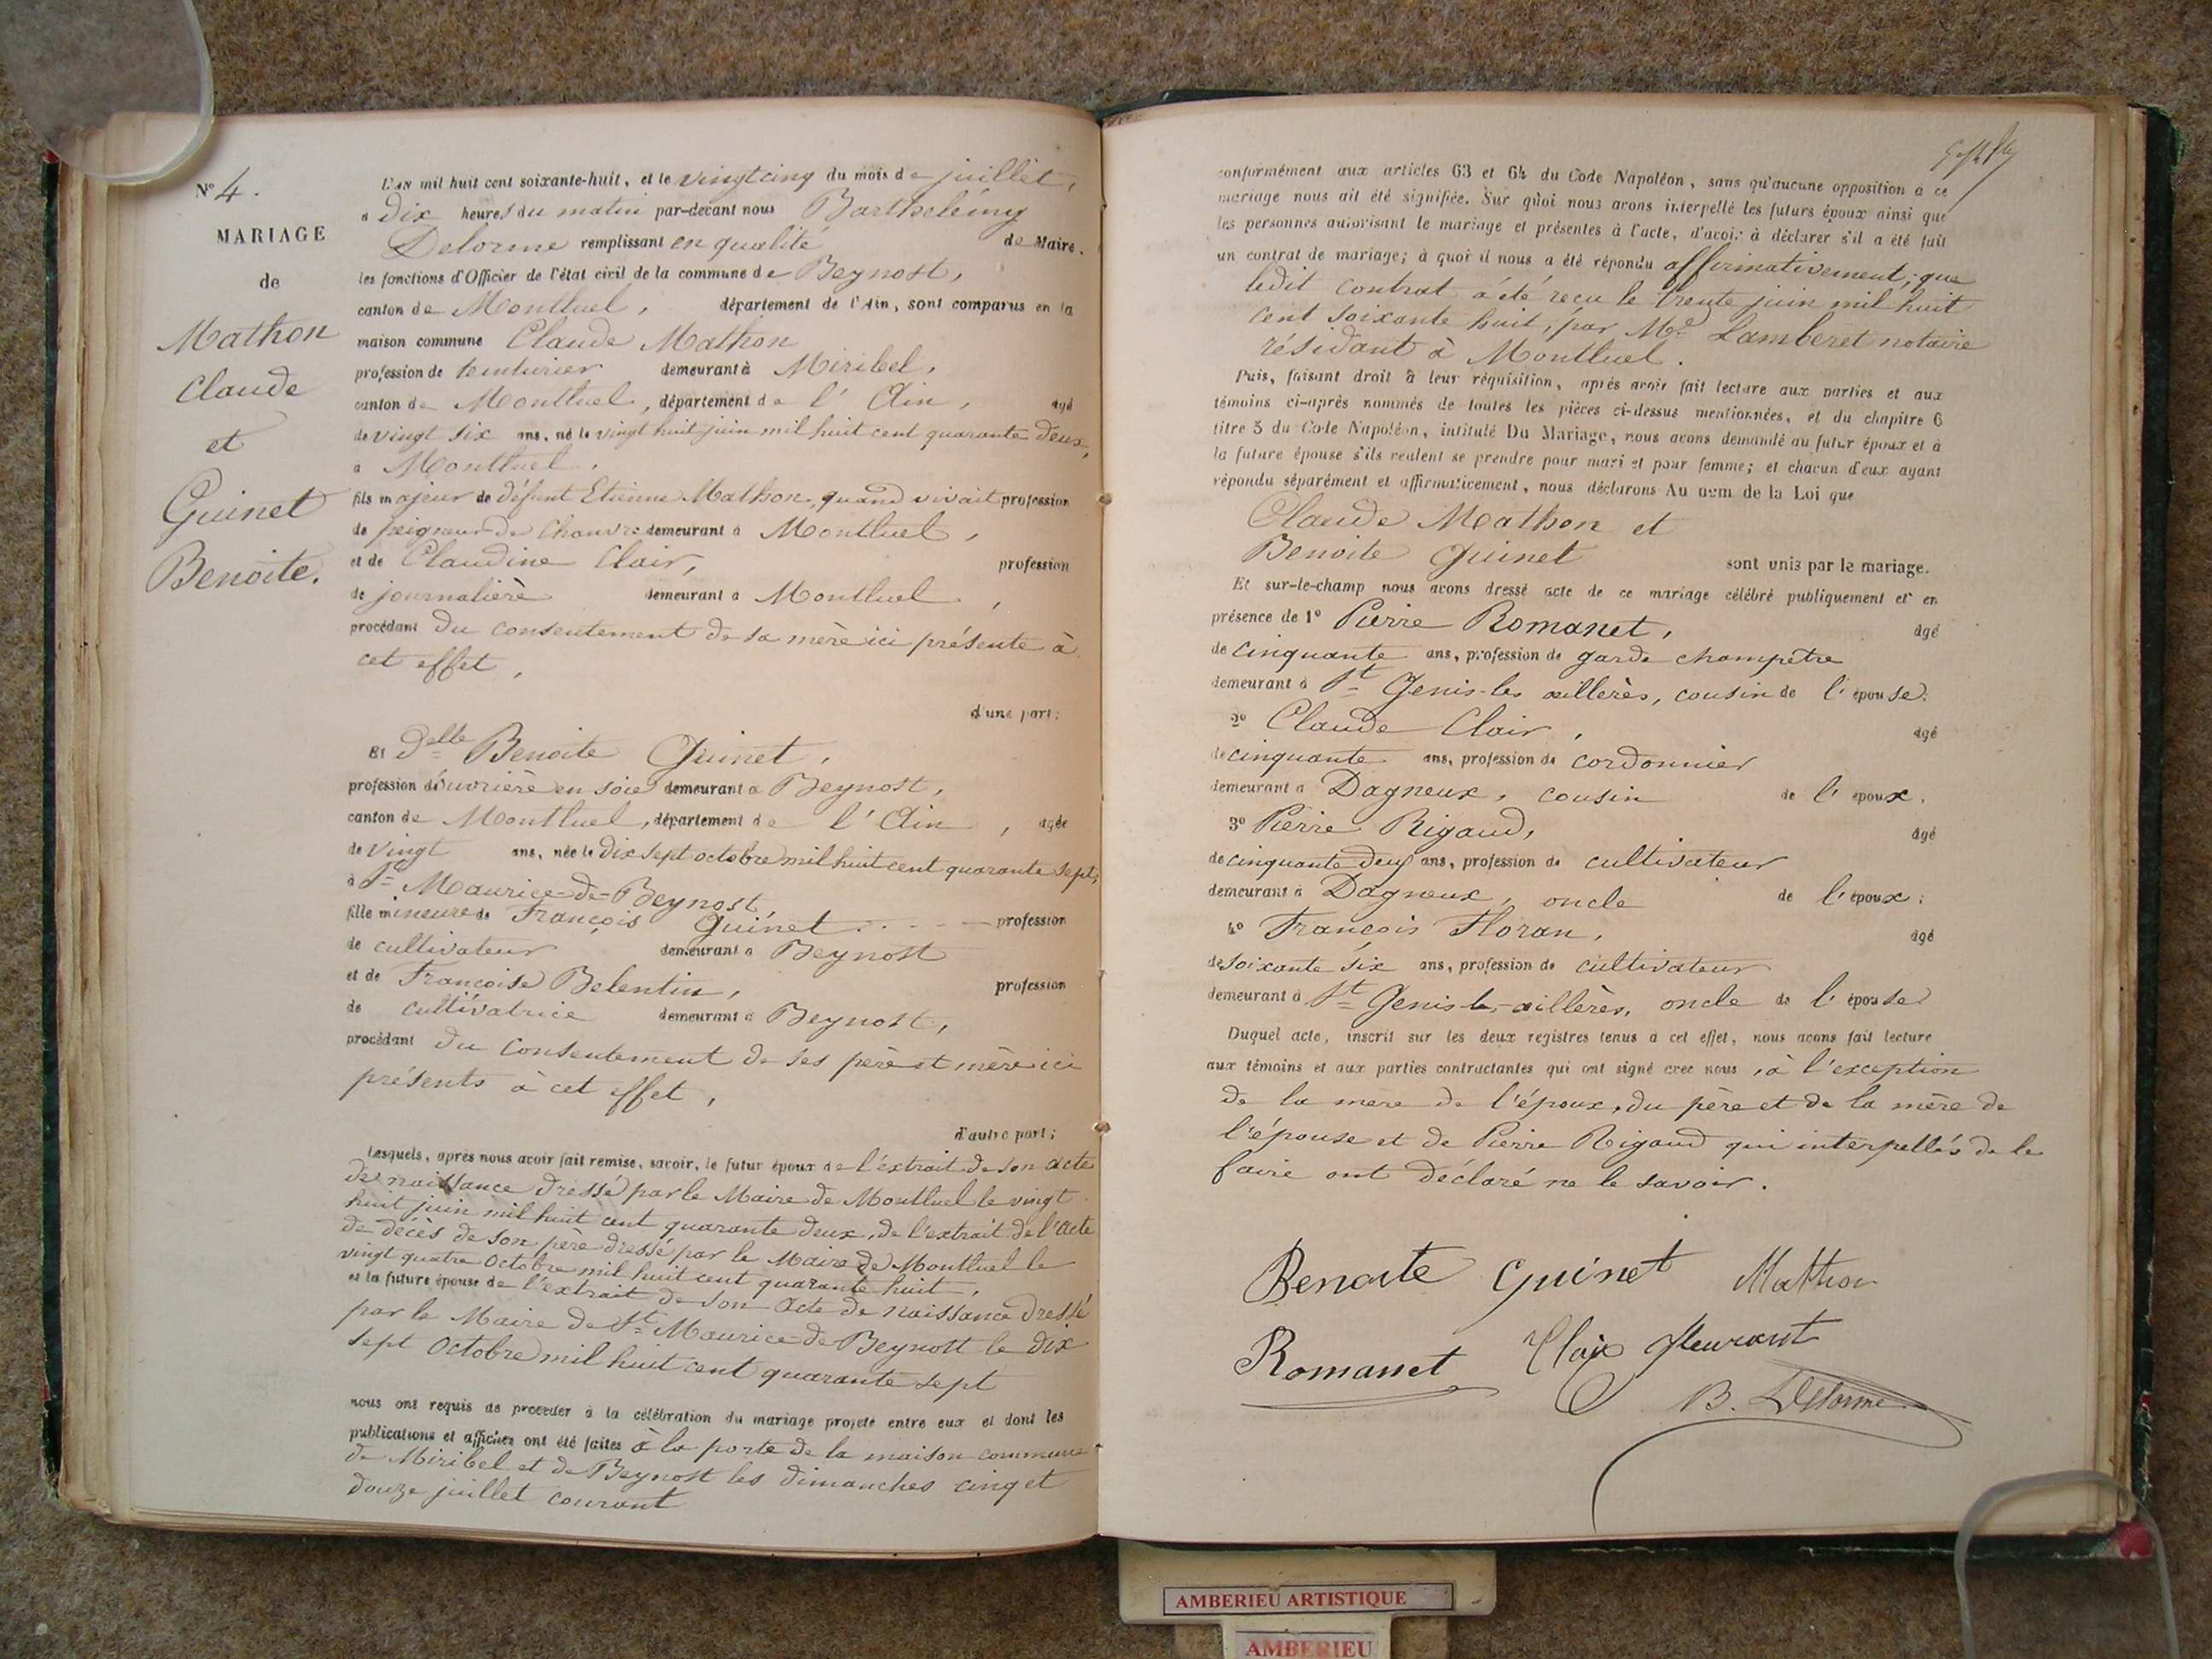 N° 4.
MARIAGE
de
Mathon
Claude
et
Guinet
Benoite.
L'AN mil huit cent soixante-huit, et le vingt cinq du mois de juillet,
à dix heures du matin par-devant nous Barthelémy
Delorme remplissant en qualité de Maire.
les fonctions d'Officier de l'état civil de la commune de Beynost,
canton de Montluel, département de l'Ain, sont comparus en la
maison commune Claude Mathon
profession de teinturier demeurant à Miribel,
canton de Montluel, département de l'Ain, âgé
de vingt six ans, né le vingt huit juin mil huit cent quarante deux,
à Montluel,
fils majeur de défunt Etienne Mathon, quand vivait profession
de peigneur de chanvre demeurant à Montluel,
et de Claudine Clair, profession
de journalière demeurant à Montluel,
procédant du consentement de sa mère ici présente à
cet effet,
d'une part;
Et Delle Benoite Guinet,
profession d'ouvrière en soie demeurant à Beynost,
canton de Montluel, département de l'Ain, âgée
de vingt ans, née le dix sept octobre mil huit cent quarante sept,
à St Maurice-de-Beynost,
fille mineure de François Guinet profession
de cultivateur demeurant à Beynost
et de Françoise Belentin, profession
de cultivatrice demeurant à Beynost,
procédant du consentement de ses père et mère ici
présents à cet effet,
d'autre part;
Lesquels, après nous avoir fait remise, savoir, le futur époux de l'extrait de son acte
de naissance dressé par le Maire de Montluel le vingt
huit juin mil huit cent quarante deux, de l'extrait de l'acte
de décès de son père dressé par le Maire de Montluel le
vingt quatre Octobre mil huit cent quarante huit,
et la future épouse de l'extrait de son acte de naissance dressé
par le Maire de St Maurice-de-Beynost le dix
sept Octobre mil huit cent quarante sept
nous ont requis de procéder à la célébration du mariage projeté entre eux et dont les
publications et affiches ont été faites à la porte de la maison commune
de Miribel et de Beynost les dimanches cinq et
douze juillet courant
conformément aux articles 63 et 64 du Code Napoléon, sans qu'aucune opposition à ce
mariage nous ait été signifiée. Sur quoi nous avons interpellé les futurs époux ainsi que
les personnes autorisant le mariage et présentes à l'acte, d'avoir à déclarer s'il a été fait
un contrat de mariage; à quoi il nous a été répondu affirmativement; que
ledit contrat a été reçu le trente juin mil huit
cent soixante huit, par Me Lamberet notaire
résidant à Montluel.
Puis, faisant droit à leur réquisition, après avoir fait lecture aux parties et aux
témoins ci-après nommés de toutes les pièces ci-dessus mentionnées, et du chapitre 6
titre 5 du Code Napoléon, intitulé Du Mariage, nous avons demandé au futur époux et à
la future épouse s'ils veulent se prendre pour mari et pour femme; et chacun d'eux ayant
répondu séparément et affirmativement, nous déclarons Au nom de la Loi que
Claude Mathon et
Benoite Guinet sont unis par le mariage.
Et sur-le-champ nous avons dressé acte de ce mariage célébré publiquement et en
présence de 1° Pierre Romanet, âgé
de cinquante ans, profession de garde champêtre
demeurant à St Genis-les œillères, cousin de l'épouse.
2° Claude Clair, âgé
de cinquante ans, profession de cordonnier
demeurant à Dagneux, cousin de l'époux.
3° Pierre Rigaud, âgé
de cinquante deux ans, profession de cultivateur
demeurant à Dagneux, oncle de l'époux;
4° François Floran, âgé
de soixante six ans, profession de cultivateur
demeurant à St Genis les œillères, oncle de l'épouse
Duquel acte, inscrit sur les deux registres tenus à cet effet, nous avons fait lecture
aux témoins et aux parties contractantes qui ont signé avec nous, à l'exception
de la mère de l'époux, du père et de la mère de
l'épouse et de Pierre Rigaud qui interpellés de le
faire ont déclaré ne le savoir.
Benoite Guinet Mathon
Romanet Claix fleurant
B. Delorme
AMBERIEU ARTISTIQUE
AMBERIEU